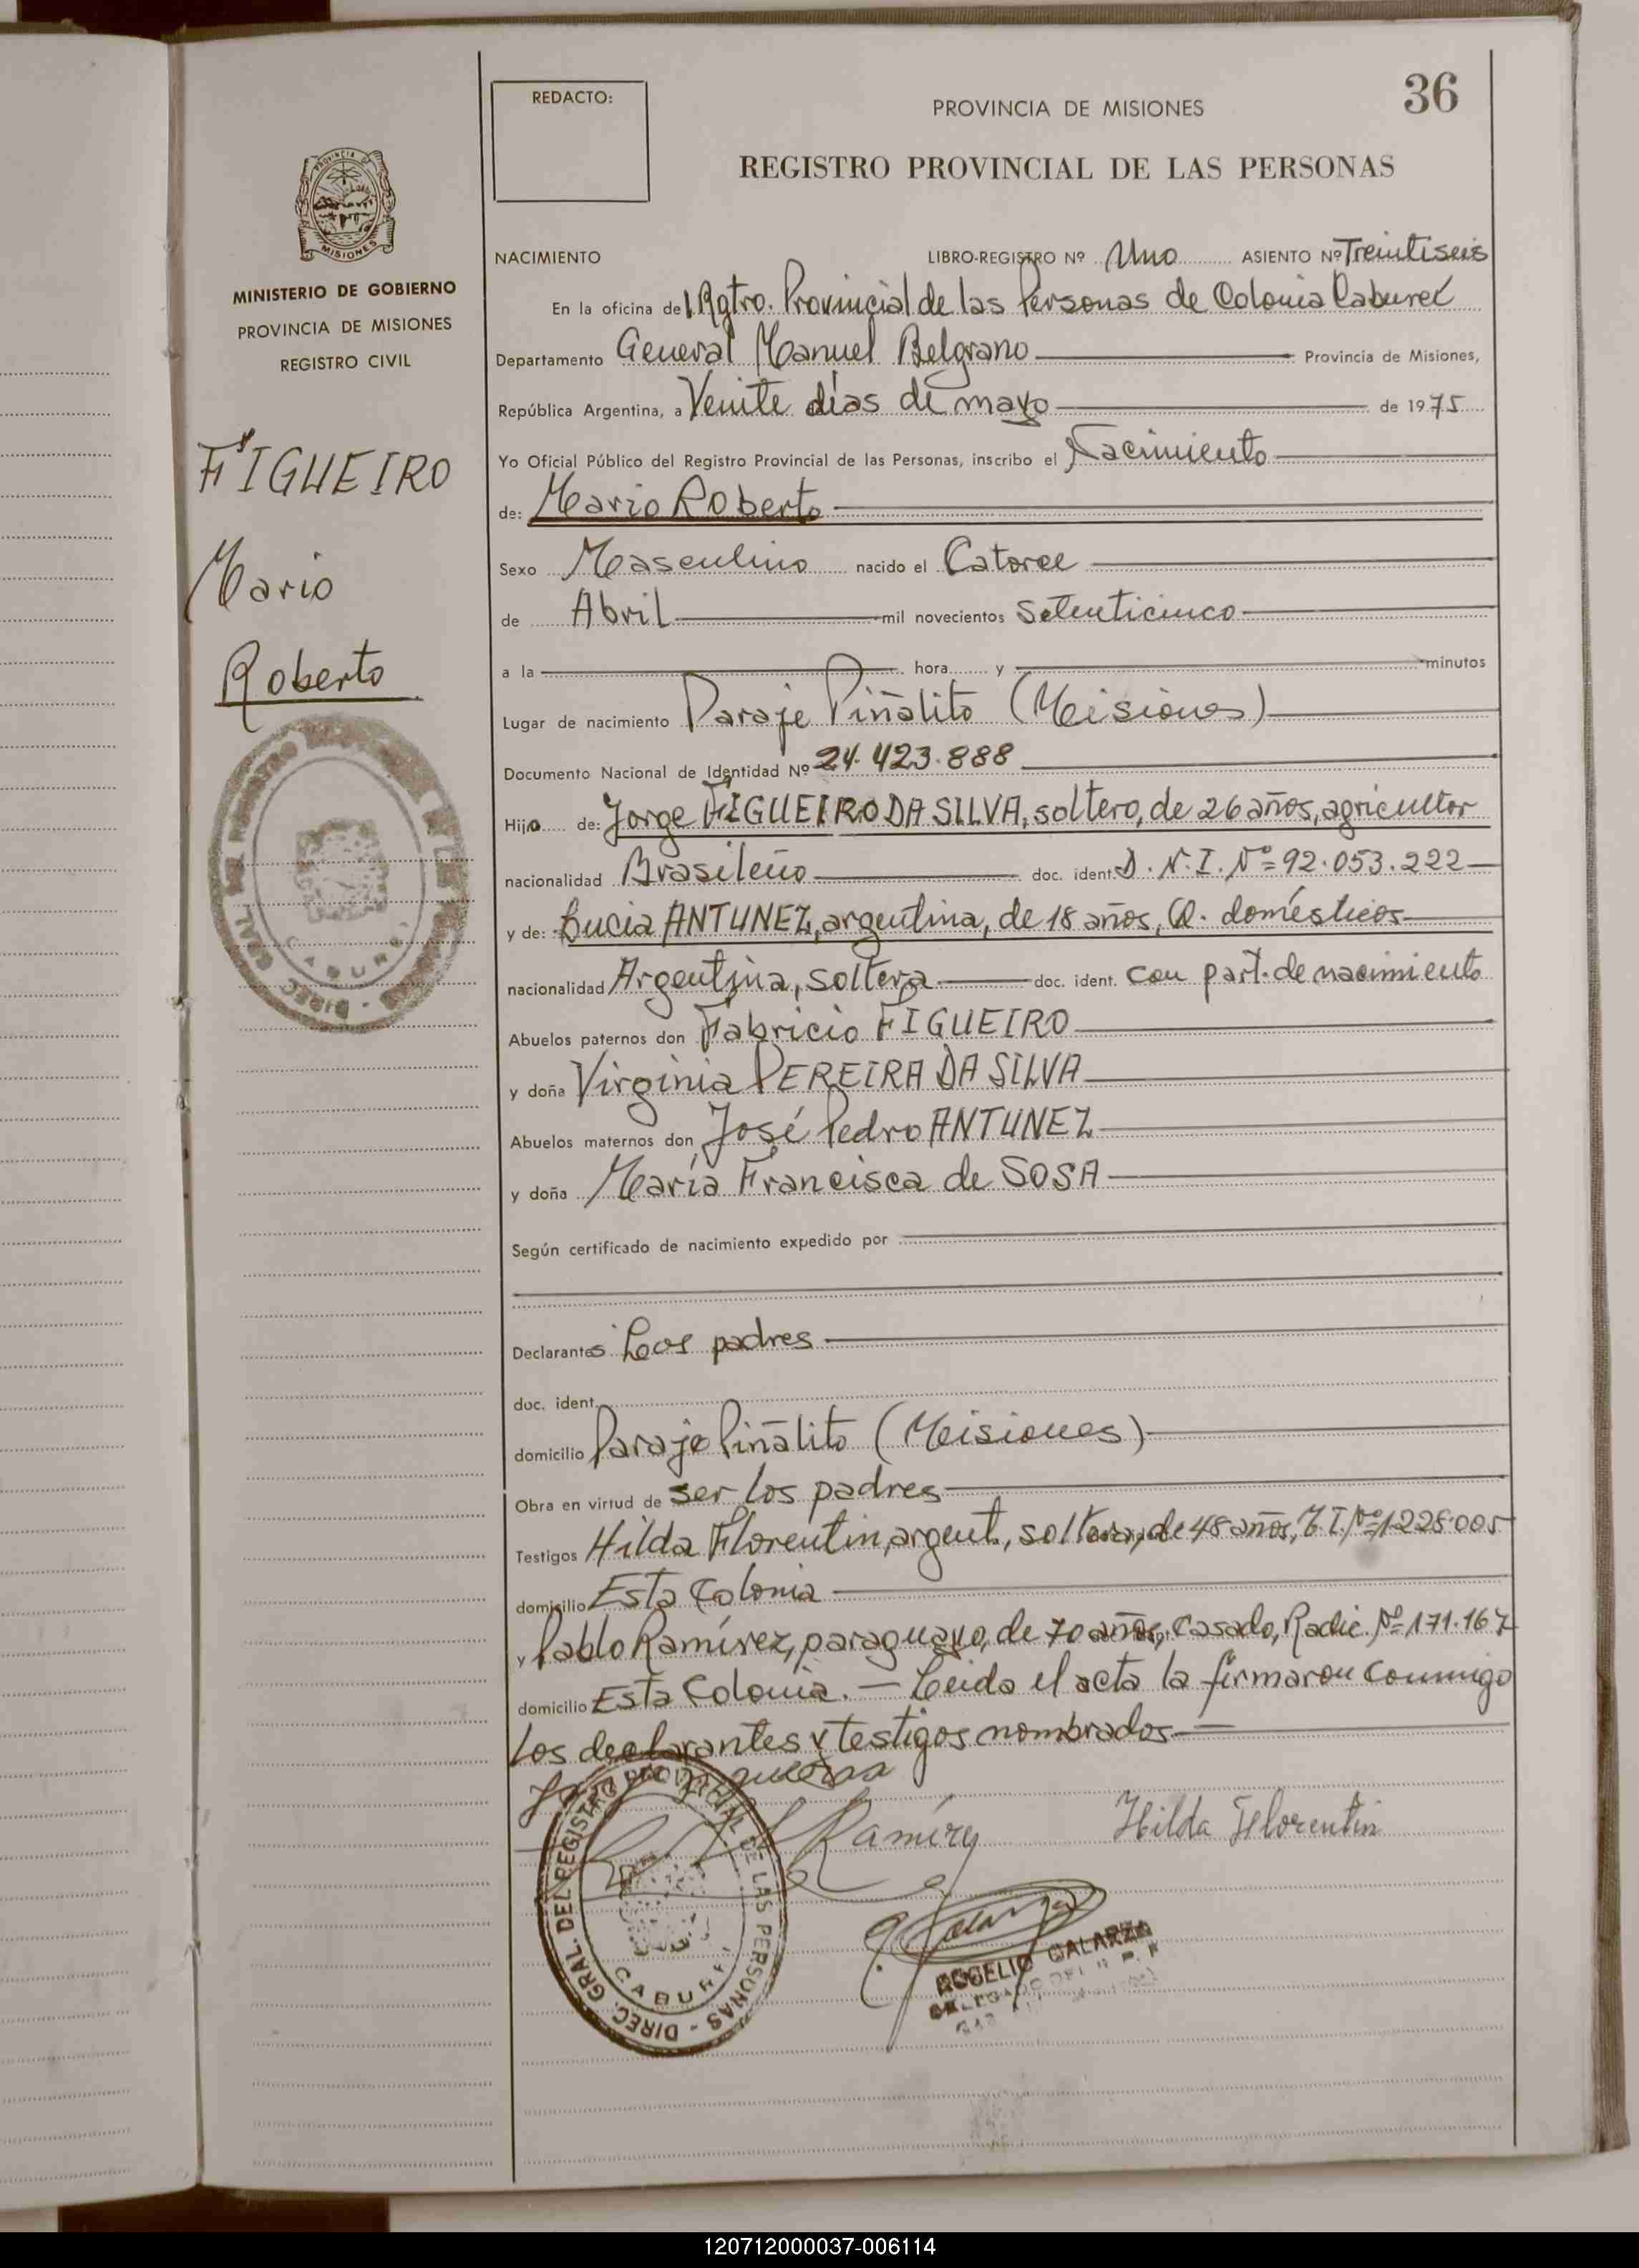 36
REDACTO:
PROVINCIA DE MISIONES
REGISTRO PROVINCIAL DE LAS PERSONAS
PROVINCIA DE
MISIONES
MINISTERIO DE GOBIERNO
PROVINCIA DE MISIONES
REGISTRO CIVIL
FIGUEIRO
Mario
Roberto
NACIMIENTO LIBRO-REGISTRO Nº Uno ASIENTO Nº Treintiseis
En la oficina del Rgtro. Provincial de las Personas de Colonia Caburei
Departamento General Manuel Belgrano Provincia de Misiones,
República Argentina, a Veinte días de mayo de 1975
Yo Oficial Público del Registro Provincial de las Personas, inscribo el Nacimiento
de: Mario Roberto
Sexo Masculino nacido el Catorce
de Abril mil novecientos Setenticinco
a la hora y minutos
Lugar de nacimiento Paraje Piñalito (Misiones)
Documento Nacional de Identidad Nº 24.423.888
Hijo de: Jorge FIGUEIRO DA SILVA, soltero, de 26 años, agricultor
nacionalidad Brasileño doc. ident. D.N.I. Nº 92.053.222
y de: Lucia ANTUNEZ, argentina, de 18 años, Q. domésticos
nacionalidad Argentina, soltera doc. ident. con part. de nacimiento
Abuelos paternos don Fabricio FIGUEIRO
y doña Virginia PEREIRA DA SILVA
Abuelos maternos don José Pedro ANTUNEZ
y doña María Francisca de SOSA
Según certificado de nacimiento expedido por
Declarantes Los padres
doc. ident.
domicilio Paraje Piñalito (Misiones)
Obra en virtud de ser los padres
Testigos Hilda Florentin, argent., soltera, de 48 años, Nº 1.228.005
domicilio Esta Colonia
y Pablo Ramírez, paraguayo, de 70 años, casado, Radic. Nº 171.167
domicilio Esta Colonia. — Leida el acta la firmaron conmigo
los declarantes y testigos nombrados
Ramírez Hilda Florentin
DIREC. GRAL. DEL REGISTRO PROVINCIAL DE LAS PERSONAS
CABUREI
ROGELIO GALARZA
120712000037-006114